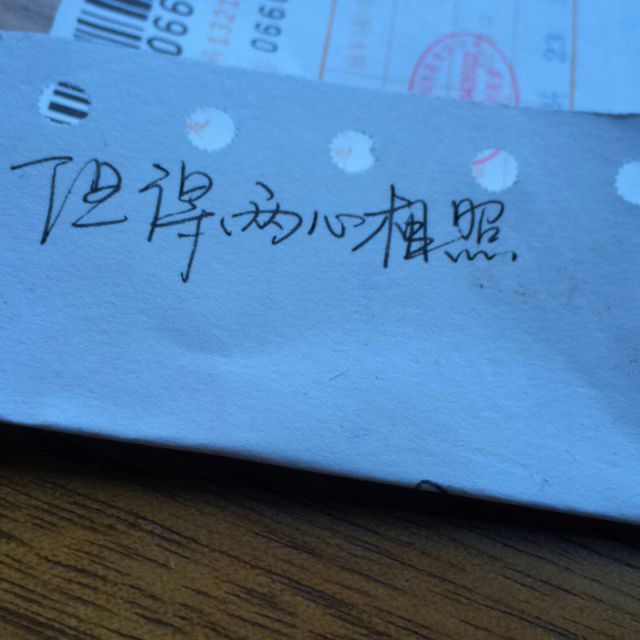 066
066
但得两心相照